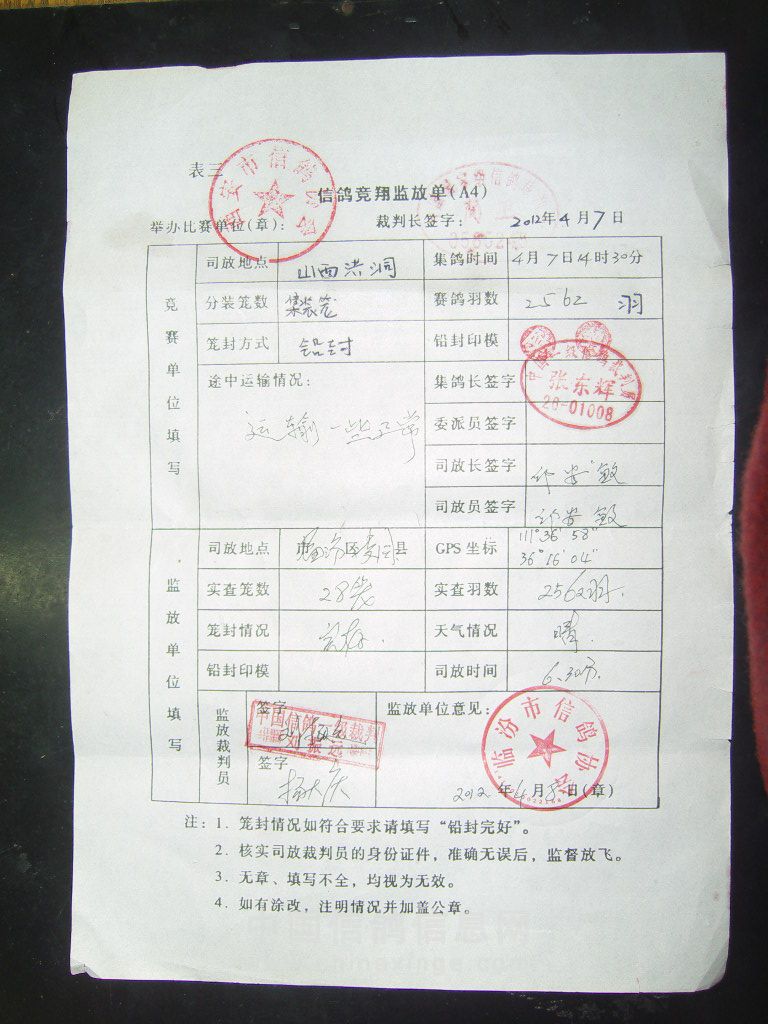 表三
信鸽竞翔监放单(A4)
举办比赛单位(章): 裁判长签字: 2012年4月7日
西安市信鸽协会
竞赛单位填写
司放地点 山西洪洞 集鸽时间 4月7日14时30分
分装笼数 集装笼 赛鸽羽数 2562 羽
笼封方式 铅封 铅封印模
途中运输情况: 集鸽长签字
张东辉
26-01008
运输一些正常 委派员签字
司放长签字
司放员签字
监放单位填写
司放地点 市 区 县 GPS 坐标 111°36′58″
36°16′04″
实查笼数 28笼 实查羽数 2562羽.
笼封情况 完好. 天气情况 晴.
铅封印模 司放时间 6.30分.
监放裁判员 签字 监放单位意见:
刘振远
签字
杨大庆
临汾市信鸽协会
2012年4月8日(章)
注: 1. 笼封情况如符合要求请填写“铅封完好”。
2. 核实司放裁判员的身份证件，准确无误后，监督放飞。
3. 无章、填写不全，均视为无效。
4. 如有涂改，注明情况并加盖公章。
中国信鸽信息网